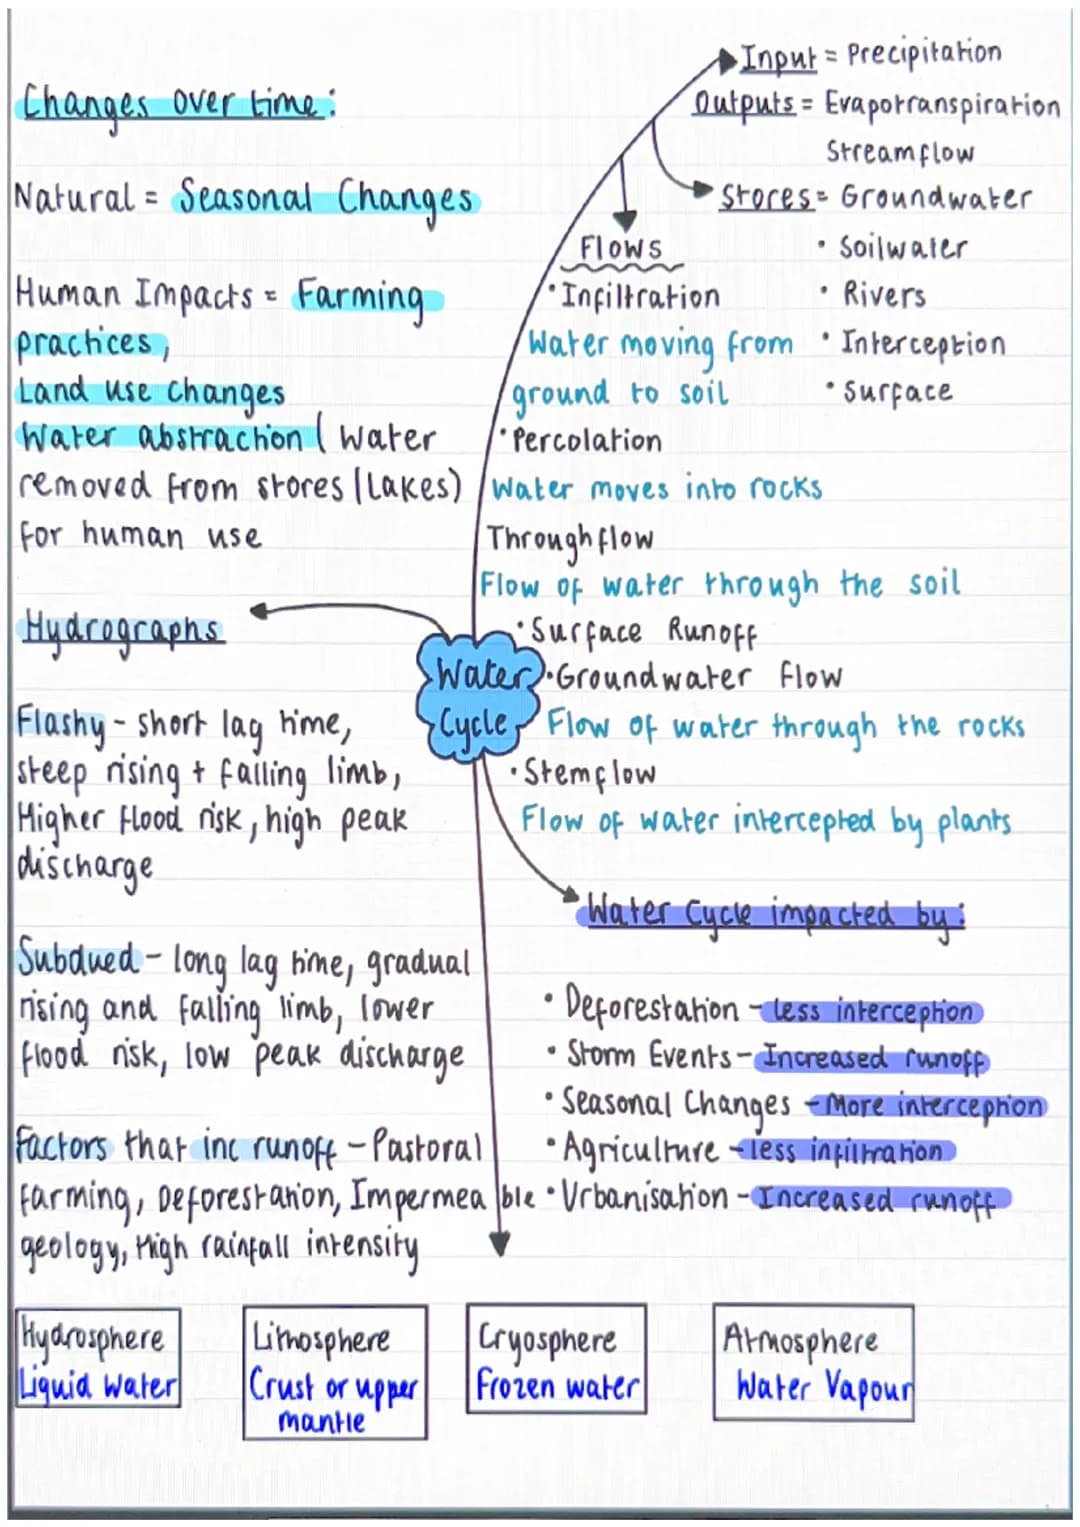 Changes over time:
Natural = Seasonal Changes
Human Impacts = Farming
practices,
Land use changes
Water abstraction ( water
removed from stores (Lakes)
for human use
Input = Precipitation
Outputs = Evapotranspiration
Streamflow
Stores = Groundwater
• Soilwater
• Rivers
• Interception
• Surface
Flows
• Infiltration
Water moving from
ground to soil
• Percolation
Water moves into rocks
Throughflow
Flow of water through the soil
• Surface Runoff
• Groundwater flow
Flow of water through the rocks
• Stemflow
Flow of water intercepted by plants
Water
Cycle
Hydrographs
Flashy - short lag time,
steep rising + falling limb,
Higher flood risk, high peak
discharge
Subdued - long lag time, gradual
rising and falling limb, lower
flood risk, low peak discharge
Factors that inc runoff - Pastoral
farming, Deforestation, Impermeable
geology, High rainfall intensity
Water Cycle impacted by:
• Deforestation - less interception
• Storm Events - Increased runoff
• Seasonal Changes - More interception
• Agriculture - less infiltration
• Urbanisation - Increased runoff
Hydrosphere
Liquid water
Lithosphere
Crust or upper
mantle
Cryosphere
Frozen water
Atmosphere
Water Vapour